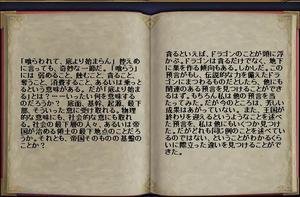 「喰らわれて、底より始まらん」控えめ
に言っても、奇妙な一節だ。「喰らう」
には 弱めること、蝕むこと、貪ること、
奪うこと、消費すること、あるいは乗っと
るという意味がある。だが「底より始ま
る」とは？ーーいったい何を意味する
のだろうか？ 底面、基幹、起源、最下
部、そういった意に受け取れる。物理
的な意味にも、社会的な意味にも取
れる。社会の最下層の人々、あるいは帝
国が治める領土の最下地点のことだろ
うか。それとも、帝国そのものの基盤の
ことか？
貪るといえば、ドラゴンのことが頭に浮
かぶ。ドラゴンは貪るだけでなく、地下
に巣を作る傾向もある。しかしだ。この
預言がもし、伝説的な力を備えたドラゴ
ンにまつわるものだとしたら、他にも関
連のある預言を見つけることができ
るはず。もちろん私は他の預言を当
たってみた。だが今のところは、芳しい
成果はあがっていない。また、王国が
終わりを迎えるというようなことを述べ
た預言を、私は他にもいくつか見つけ
た。だがどれも同じ例のことを述べてい
るのではない、ということがわかるくら
いに際立った違いを見つけることがで
きた。